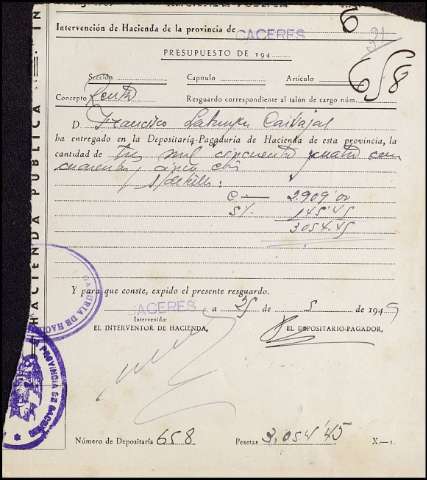 6
Intervención de Hacienda de la provincia de CACERES
31
658
PRESUPUESTO DE 194
Sección Capítulo Artículo
Concepto Renta Resguardo correspondiente al talón de cargo núm.
D. Francisco Carvajal
ha entregado en la Depositaría-Pagaduría de Hacienda de esta provincia, la
cantidad de tres mil cincuenta y cuatro con
cuarenta y cinco cts
C 2.909'00
5% 145'45
3054'45
Y para que conste, expido el presente resguardo.
CACERES a 25 de 5 de 194
Intervenido:
EL INTERVENTOR DE HACIENDA, EL DEPOSITARIO-PAGADOR,
Número de Depositaría 658 Pesetas 3.054'45 X—1.
HACIENDA PUBLICA IN
PROVINCIA DE CACERES